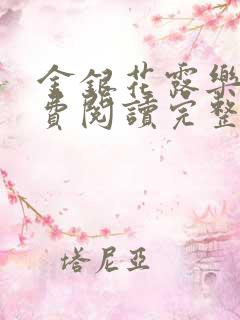 金銀花露樂
費閱讀完整
塔尼亞